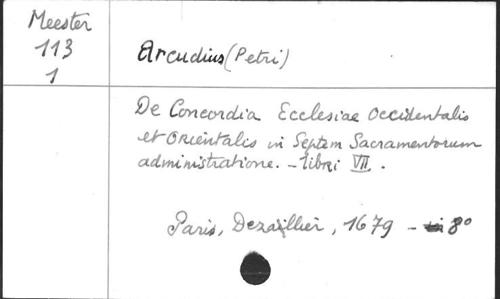 Meester
113
1
Arcudius (Petri)
De Concordia Ecclesiae Occidentalis
et Orientalis in Septem Sacramentorum
administratione. - libri VII.
Paris, Dezallier, 1679 - 8°